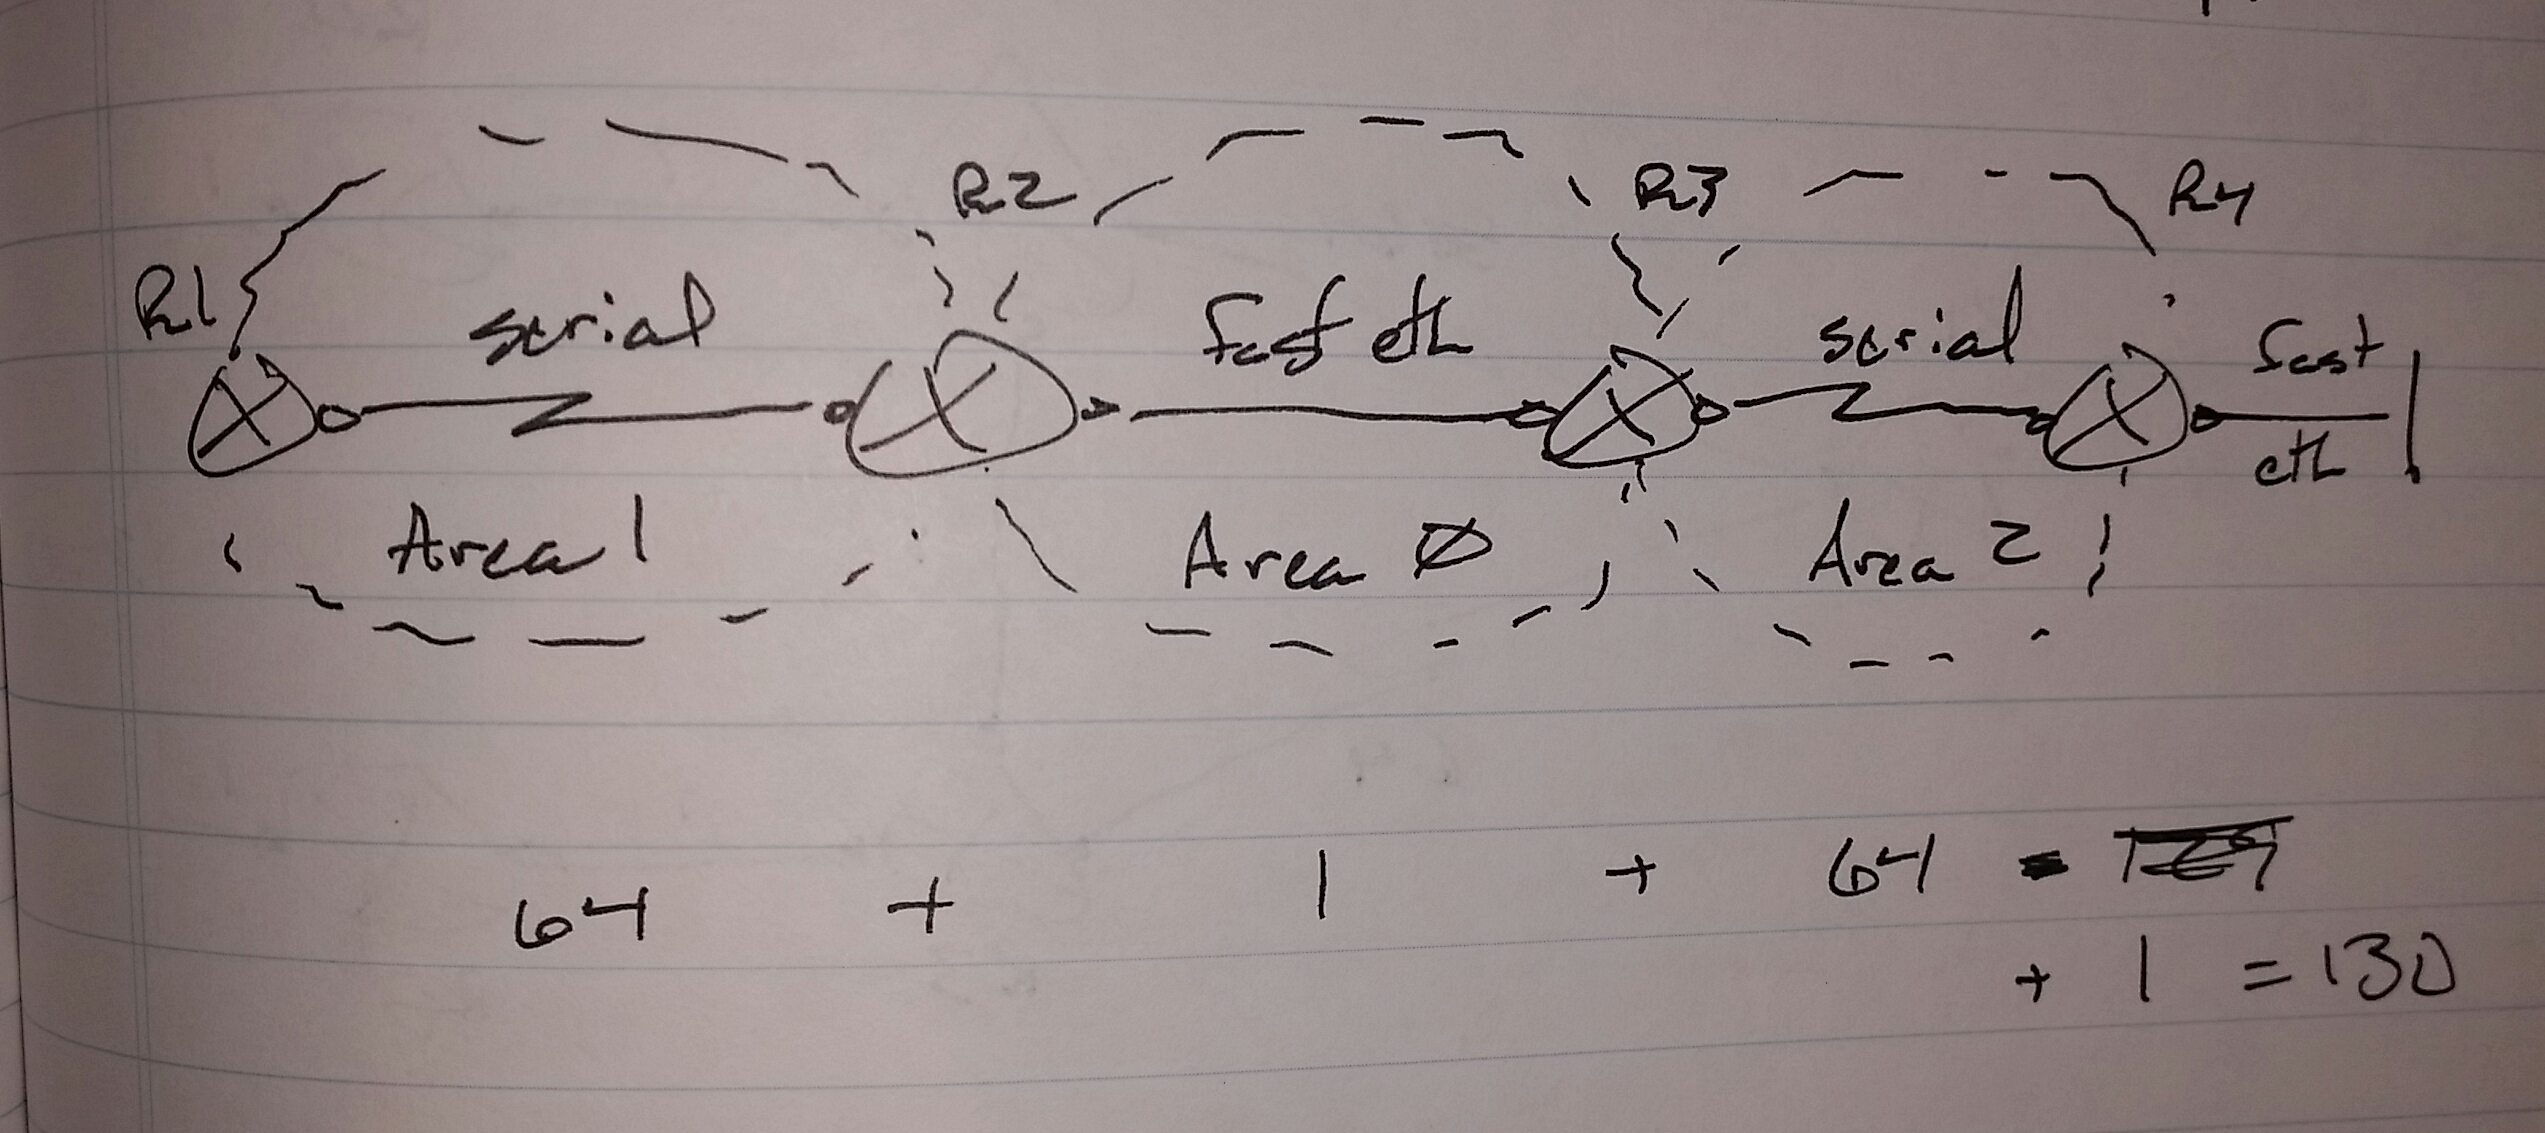 R2 R3 R4
R1 serial fast eth serial fast
eth
Area 1 Area 0 Area 2
64 + 1 + 64 = 129
+ 1 = 130